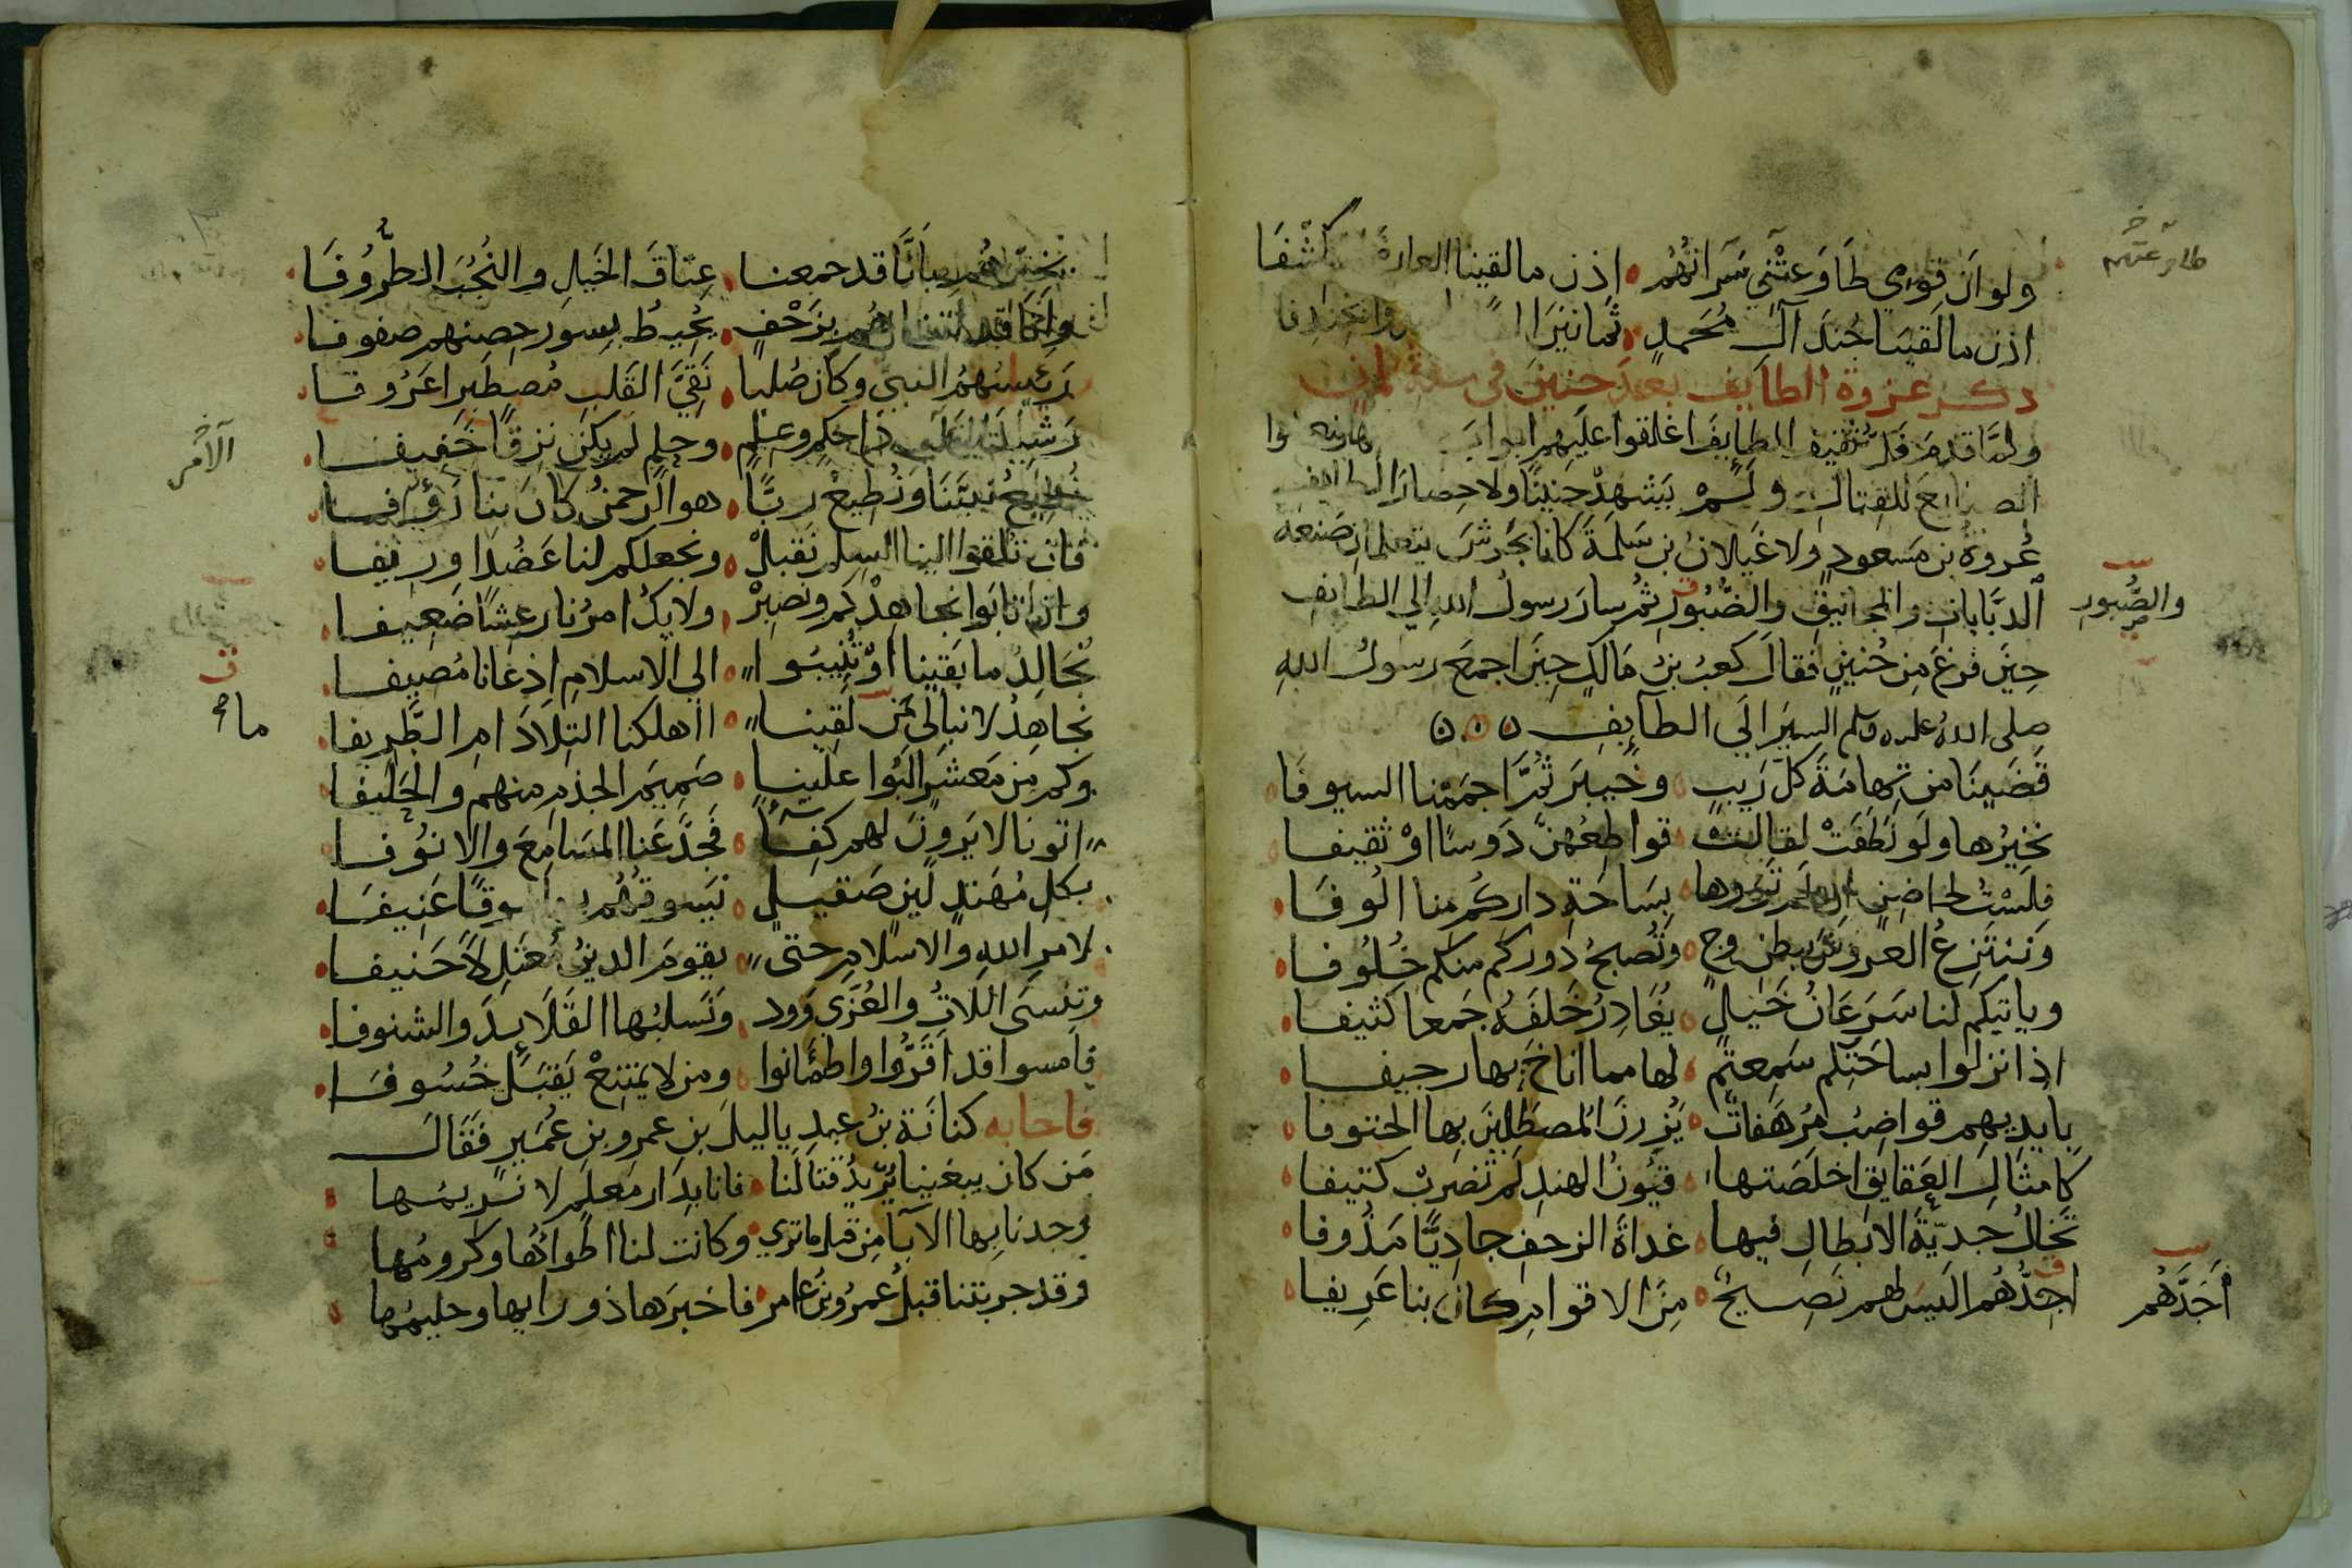 ولو ان قومي طَاوَعتْني سَرَاتُهُم اذن ما لقينا العارض المتكشفا
طاوعتهم
اذن ما لقينا جُندَ آلِ مُحَمدٍ ثمانين الفا واستمدوا بخندفا
ذكر غزوة الطايف بعد حنين في سنة ثمان
ولمَّا قدم فَلُّ ثقيف الطايفَ اغلقوا عليهم ابواب مدينتها وصنعوا
الصنايعَ للقتال ولم يَشهدْ حنينًا ولا حصارَ الطايف
عُروةُ بن مسعودٍ ولا غَيلانُ بن سَلَمةَ كانا بجُرشَ يتعلمان صَنعة
الدبَّاباتِ والمجانيقِ والضُّبُورِ ثم سارَ رسولُ اللهِ الى الطايف
والصُّبورِ
حينَ فرغَ مِن حُنينٍ فقالَ كعبُ بنُ مَالكٍ حينَ اجمَعَ رسولُ اللهِ
صلى الله عليه وسلم السيرَ الى الطَآيِفِ
قَضَينَا من تِهامَةَ كلَّ رَيبٍ وخَيبرَ ثمَّ اجمَمْنا السيوفَا
نخيّرُها ولو نَطَقَتْ لقالت قواطِعُهنَّ دَوسًا اوْ ثقيفا
فلستُ لحاضنٍ ان لم تروها بسَاحَةِ داركم منا الُوفَا
وننتزعُ العروشَ ببطنِ وجٍ وتُصبحُ دوركم منكم خُلُوفا
وياتيكم لنا سَرَعَانُ خَيلٍ يُغَادِرُ خَلفَهُ جَمعا كثيفا
اذا نزلوا بساحتكم سَمِعتم لها مما اناخَ بها رجيفا
بايديهم قواضبُ مُرهَفاتٌ يُزرنَ المُصطلينَ بها الحتوفا
كامثَالِ العَقايقِ اخلَصَتها قيُونُ الهندِ لم تُضرب كتيفا
تخالُ جَديَّةَ الابطالِ فيها غداةَ الزحفِ جاديًّا مَدُوفا
اجِدُّهُم اليسَ لهم نَصيحٌ مِنَ الاقوامِ كان بنا عَريفا
أَجَدَّهُم
يخبّرهُم بانَّا قد جمعنا عِتاقَ الخيلِ والنُجُبَ الطُّرُوفَا
وانا قد اتيناهُم بزَحْفٍ يُحيطُ بسورِ حصنهم صفوفا
رَئيسُهُمُ النبيُ وكان صُلبا نَقِيَّ القَلبِ مُصطبِرا عَزُوفا
رشيدَ الامرِ ذا حكمٍ وعلمٍ وحلمٍ لم يكن نزقًا خَفيفا
الآمْرِ
نُطيعُ نبيَّنَا ونُطيعُ ربًّا هو الرحمنُ كانَ بنا رَؤُفا
فان تلقوا الينا السِلمَ نَقبلْ ونجعلكم لنا عَضُدًا وريفا
وان تابَوا نجاهدْكم ونَصبِرْ ولا يكُ امرُنا رعِشًا ضَعيفا
نُجَالِدُ ما بَقينا اوْ تُنيبُوا الى الاسلامِ اذعانا مُضيفا
نجاهِدُ لا نبالي مَن لقينا ااهلكنا التِلادَ ام الطَّريفا
ما
وكم مِن مَعشرٍ البُوا علينا صَميمَ الجذمِ منهم والحَليفا
اتونا لا يَرونَ لهم كِفَآءً فجدَّعنا المسَامِعَ والانوُفا
بكلِ مُهَندٍ لَينٍ صَقيلٍ نَسوقهُم بها سَوقًا عَنيفَا
لامرِ اللهِ والاسلامِ حتى يقومَ الدينُ مُعتدِلاً حَنيفا
وتنسى اللاتُ والعُزَّى وَودٌ ونَسلبُها القَلايدَ والشنوفا
فامسوا قد اَقَرُّوا واطمَأنوا ومن لا يمتنِعْ يَقبَل خُسُوفَا
فاجابه كنانَة بنُ عبدِ ياليلَ بنِ عمرِو بنِ عُمَيرٍ فقالَ
مَن كان يبغينا يُريدُ قتالَنا فانا بِدَارٍ مَعلمٍ لا نريمُها
وجدنا بِها الآبا مِن قبل ما ترى وكانت لنا اطواؤُها وكرومُها
وقد جربتنا قبلُ عمرُو بنُ عامرٍ فاخبرَها ذو رايِها وحليمُها